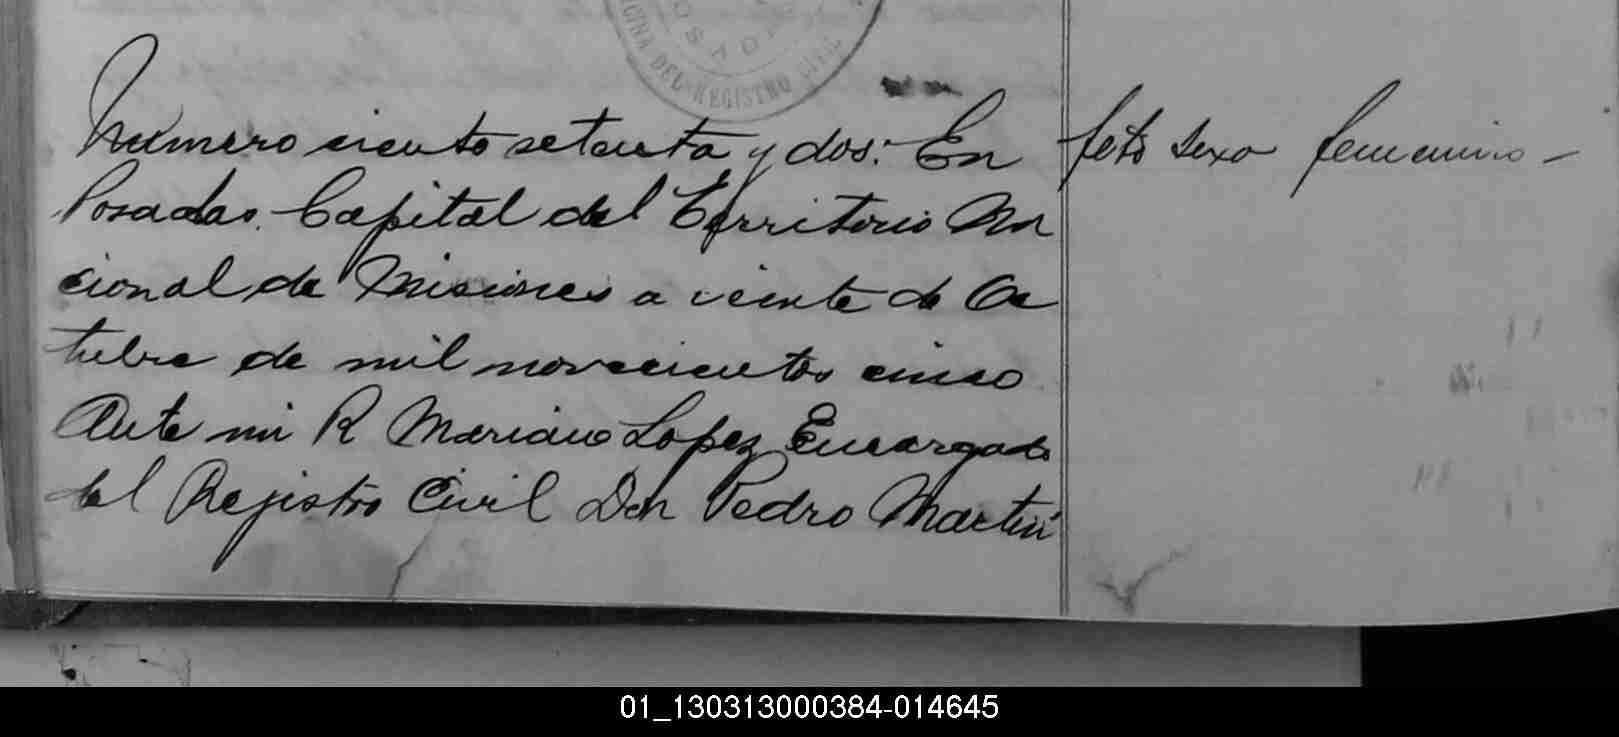 POSADAS
OFICINA DEL REGISTRO CIVIL
Numero ciento setenta y dos: En
Posadas. Capital del Territorio Na
cional de Misiones a veinte de Oc
tubre de mil novecientos cinco
Ante mi R Mariano Lopez Encargado
del Registro Civil Don Pedro Martin
feto sexo femenino -
01_130313000384-014645